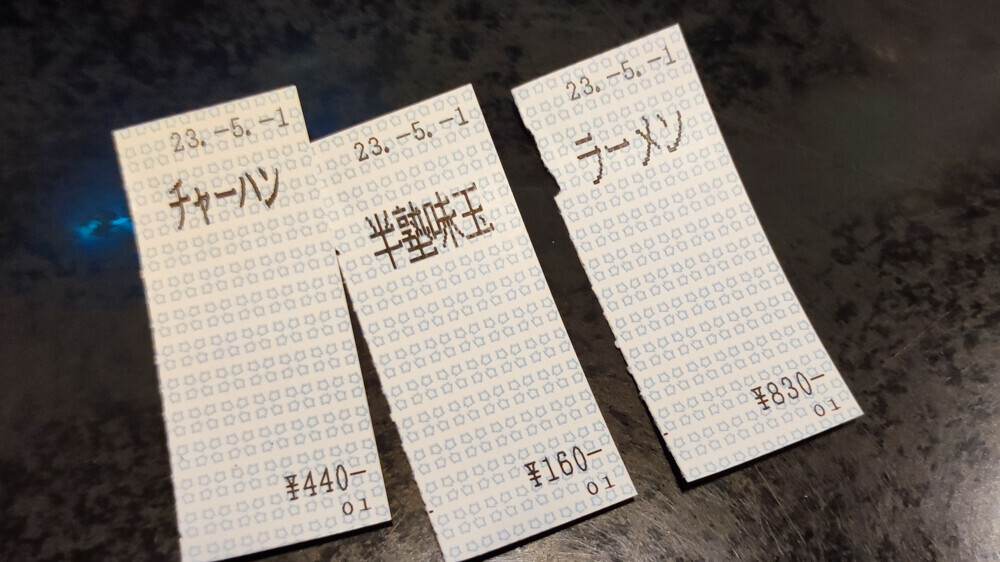 23.-5.-1
チャーハン
¥440-
01
23.-5.-1
半熟味玉
¥160-
01
23.-5.-1
ラーメン
¥830-
01